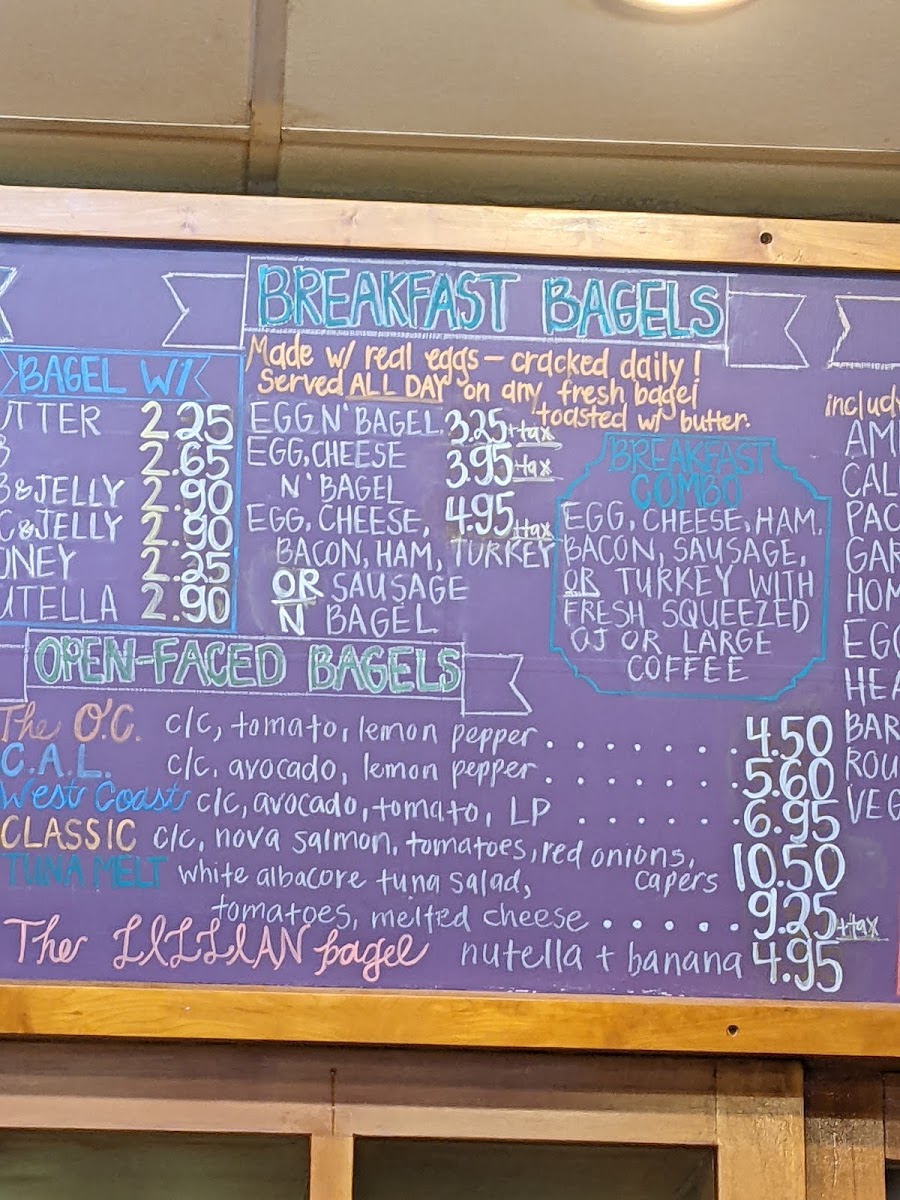 BREAKFAST BAGELS
Made w/ real eggs – cracked daily!
Served ALL DAY on any fresh bagel
toasted w/ butter.
BAGEL W/
UTTER 2.25
B 2.65
B & JELLY 2.90
C & JELLY 2.90
ONEY 2.25
UTELLA 2.90
EGG N' BAGEL 3.25 +tax
EGG, CHEESE 3.95 +tax
N' BAGEL
EGG, CHEESE, 4.95 +tax
BACON, HAM, TURKEY
OR SAUSAGE
N' BAGEL
BREAKFAST
COMBO
EGG, CHEESE, HAM,
BACON, SAUSAGE,
OR TURKEY WITH
FRESH SQUEEZED
OJ OR LARGE
COFFEE
OPEN-FACED BAGELS
The O.C. c/c, tomato, lemon pepper . . . . . . . 4.50
C.A.L. c/c, avocado, lemon pepper . . . . . . . 5.60
West Coast c/c, avocado, tomato, LP . . . . . . 6.95
CLASSIC c/c, nova salmon, tomatoes, red onions,
capers 10.50
TUNA MELT white albacore tuna salad,
tomatoes, melted cheese . . . . . 9.25 +tax
The LILLIAN bagel nutella + banana 4.95
includ
AM
CAL
PAC
GAR
HOM
EGG
HEA
BAR
ROU
VEG